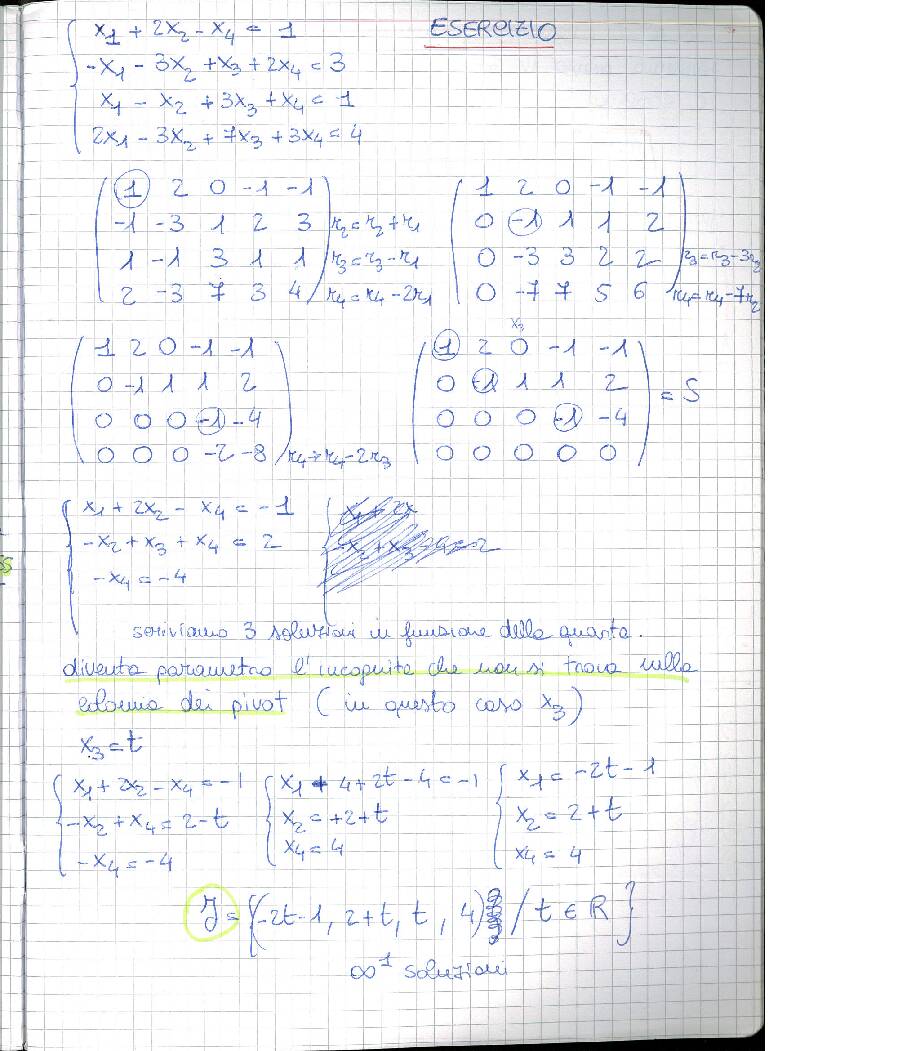 ESERCIZIO
x1 + 2x2 - x4 = 1
-x1 - 3x2 + x3 + 2x4 = 3
x1 - x2 + 3x3 + x4 = 1
2x1 - 3x2 + 7x3 + 3x4 = 4
1 2 0 -1 -1
-1 -3 1 2 3 r2 = r2 + r1
1 -1 3 1 1 r3 = r3 - r1
2 -3 7 3 4 r4 = r4 - 2r1
1 2 0 -1 -1
0 -1 1 1 2
0 -3 3 2 2 r3 = r3 - 3r2
0 -7 7 5 6 r4 = r4 - 7r2
1 2 0 -1 -1
0 -1 1 1 2
0 0 0 -1 -4
0 0 0 -2 -8 r4 = r4 - 2r3
x3
1 2 0 -1 -1
0 -1 1 1 2
0 0 0 -1 -4
0 0 0 0 0
= S
x1 + 2x2 - x4 = -1
-x2 + x3 + x4 = 2
-x4 = -4
scriviamo 3 soluzioni in funzione della quarta.
diventa parametro l'incognita che non si trova sulla
colonna dei pivot (in questo caso x3)
x3 = t
x1 + 2x2 - x4 = -1
-x2 + x4 = 2 - t
-x4 = -4
x1 + 4 + 2t - 4 = -1
x2 = +2 + t
x4 = 4
x1 = -2t - 1
x2 = 2 + t
x4 = 4
Y = {(-2t-1, 2+t, t, 4) / t ∈ R}
∞1 soluzioni